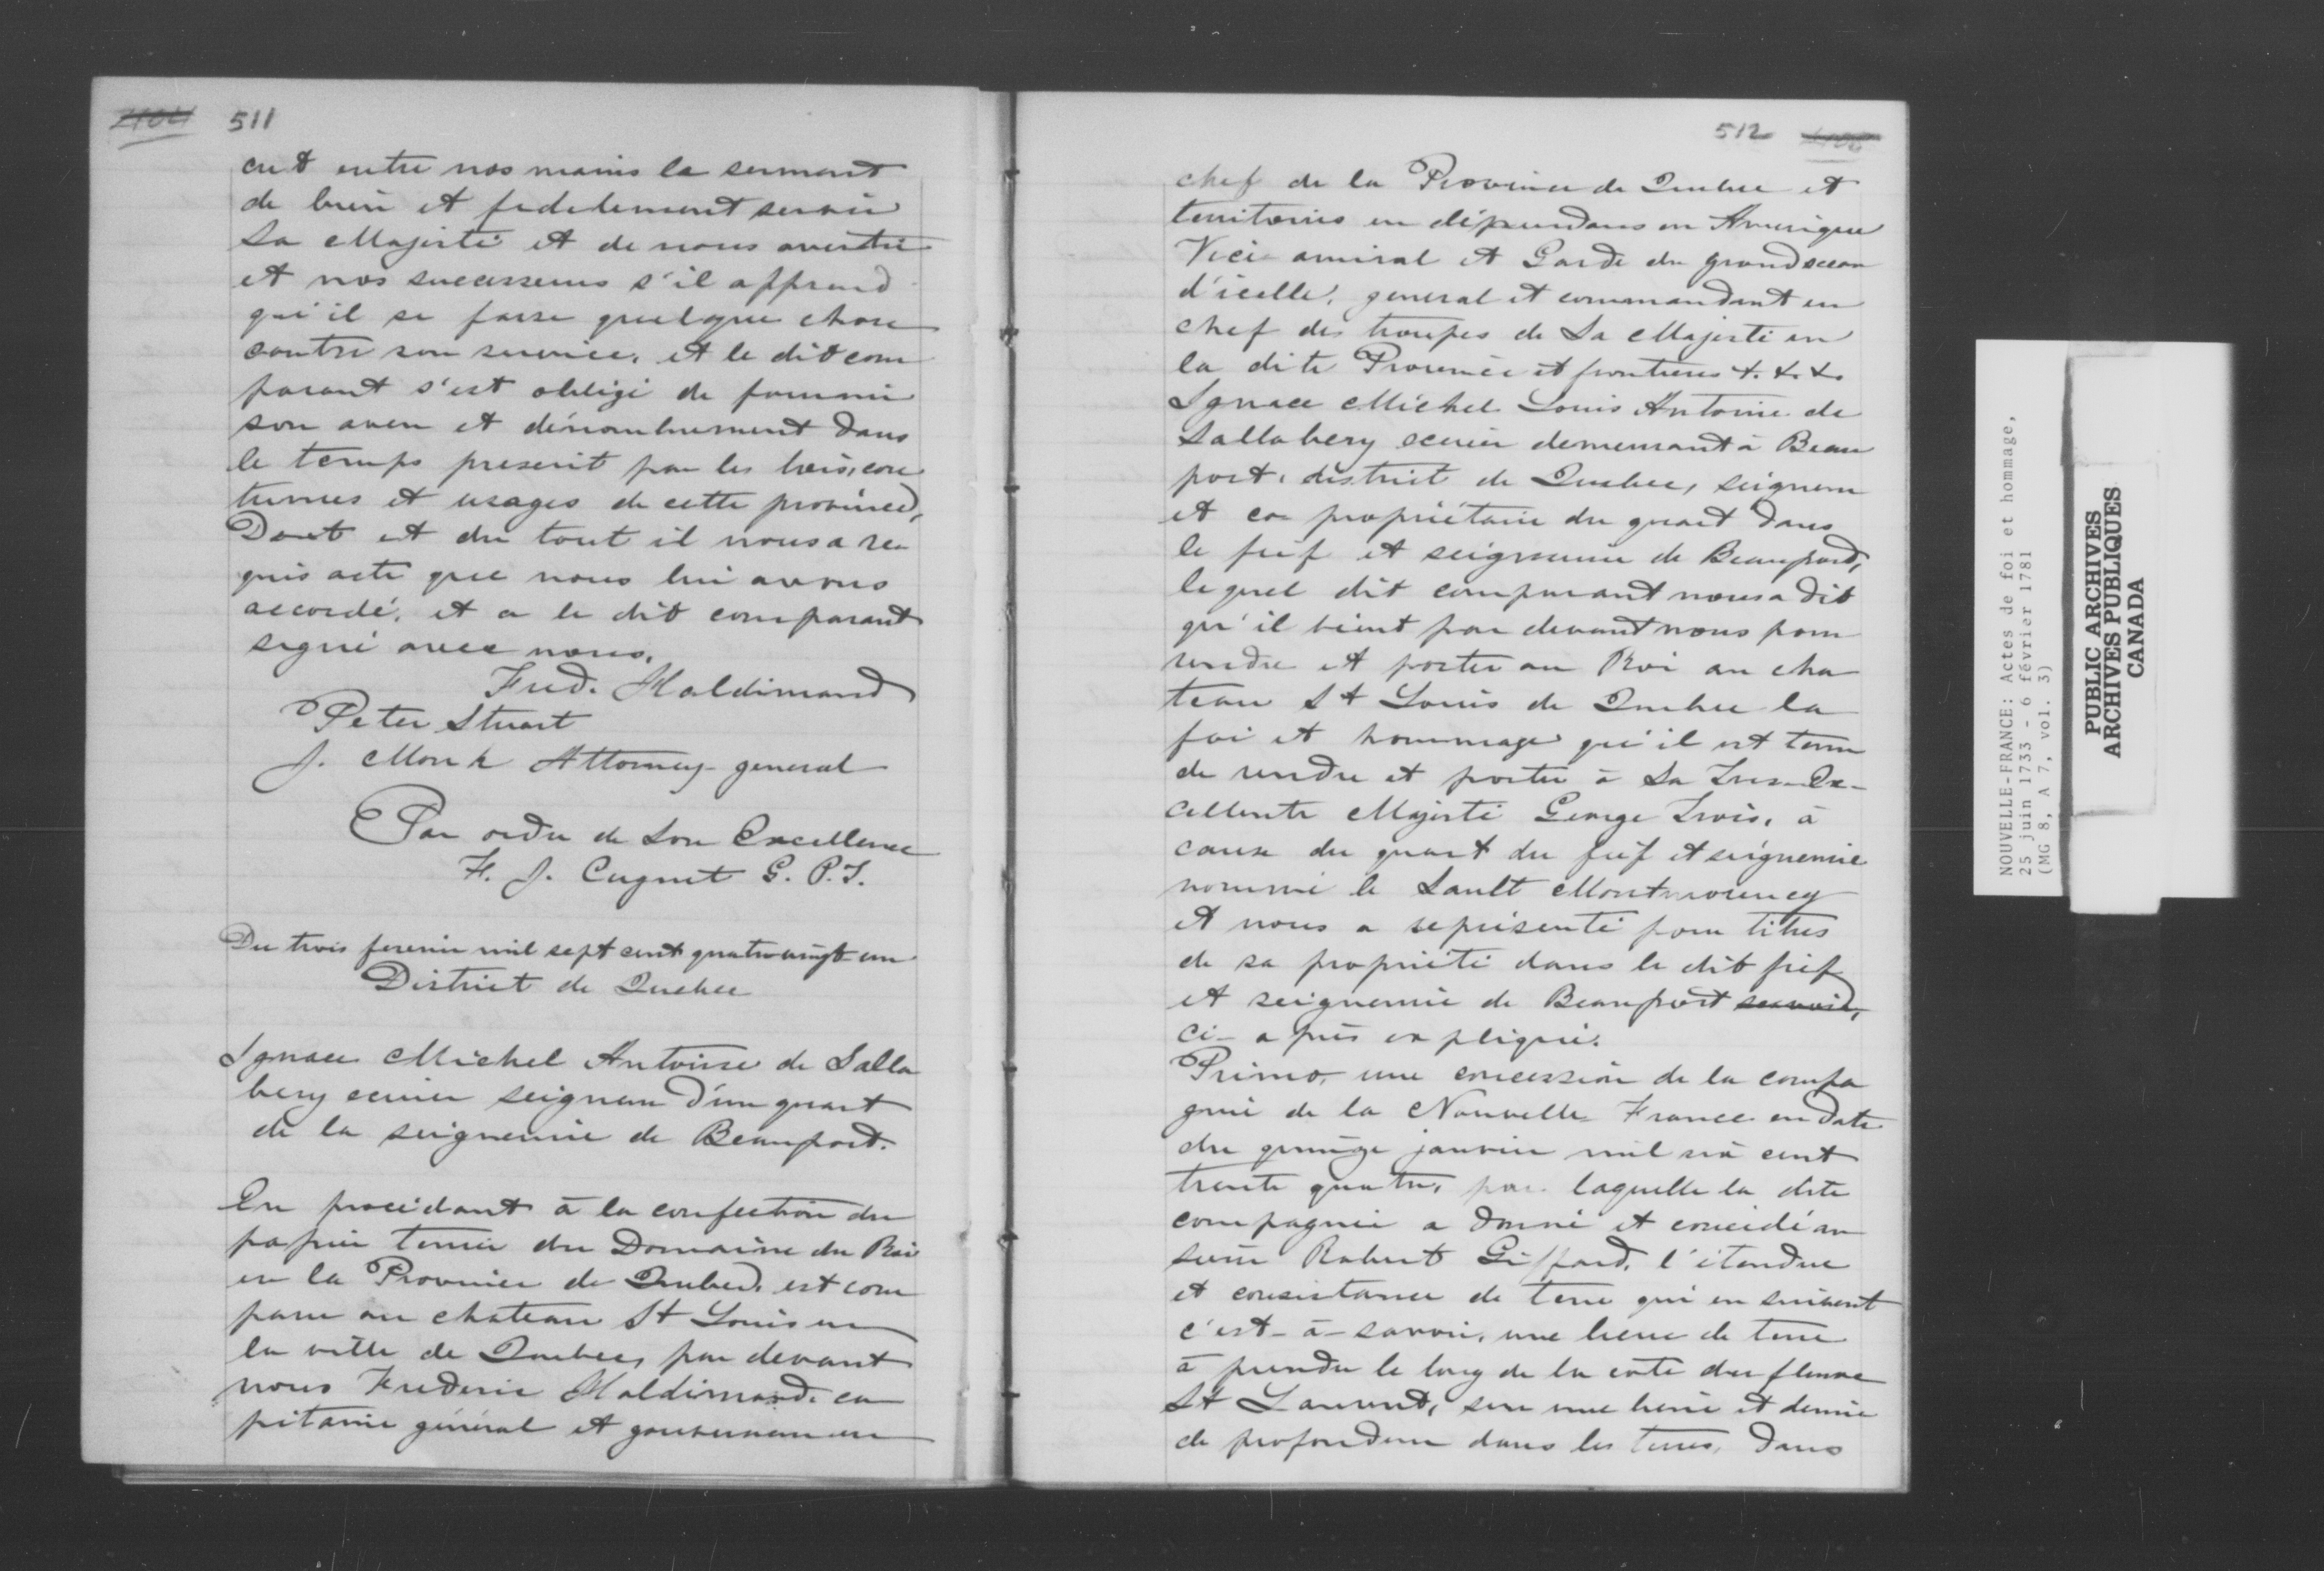 511
ent entre nos mains le serment
de bien et fidelement servir
Sa Majesté et de nous avertir
et nos successeurs s'il apprend
qu'il se fasse quelque chose
contre son service, et le dit com
parant s'est obligé de fournir
son aveu et dénombrement dans
le temps prescrit par les lois, cou
tumes et usages de cette province,
Dont et du tout il nous a re
quis acte que nous lui avons
accordé, et a le dit comparant
signé avec nous.
Fred. Haldimand
Peter Stuart
J. Monk Attorney general
Par ordre de Son Excellence
F. J. Cugnet G. P. T.
Du trois fevrier mil sept cent quatrevingt un
District de Quebec
Ignace Michel Antoine de Salla
bery ecuier seigneur d'un quart
de la seigneurie de Beauport.
En procédant à la confection du
papier terrier du Domaine du Roi
en la Province de Quebec, est com
paru au chateau St Louis en
la ville de Quebec, par devant
nous Frederic Haldimand, ca
pitaine général et gouverneur en
512
chef de la Province de Quebec et
territoires en dépendans en Amerique
Vice-amiral et Garde du grand sceau
d'icelle, general et commandant en
chef des troupes de Sa Majesté en
la dite Province et frontieres &. &. &.
Ignace Michel Louis Antoine de
Sallabery ecuier demeurant à Beau
port, district de Quebec, seigneur
et co-propriétaire du quart dans
le fief et seigneurie de Beauport,
lequel dit comparant nous a dit
qu'il vient par devant nous pour
rendre et porter au Roi au cha
teau St Louis de Quebec la
foi et hommage qu'il est tenu
de rendre et porter à Sa Tres-Ex-
cellente Majesté George Trois, à
cause du quart du fief et seigneurie
nommé le Sault Montmorency
et nous a représenté pour titres
de sa propriété dans le dit fief
et seigneurie de Beauport savoir,
ci-après expliqué.
Primo, une concession de la compa
gnie de la Nouvelle France en date
du quinze janvier mil six cent
trente quatre, par laquelle la dite
compagnie a donné et concédé au
sieur Robert Giffard, l'étendue
et consistance de terre qui en suivent
c'est-à-savoir, une lieue de terre
à prendre le long de la cote du fleuve
St Laurent, sur une lieue et demie
de profondeur dans les terres, dans
NOUVELLE-FRANCE: Actes de foi et hommage,
25 juin 1733 - 6 février 1781
(MG 8, A 7, vol. 3)
PUBLIC ARCHIVES
ARCHIVES PUBLIQUES
CANADA